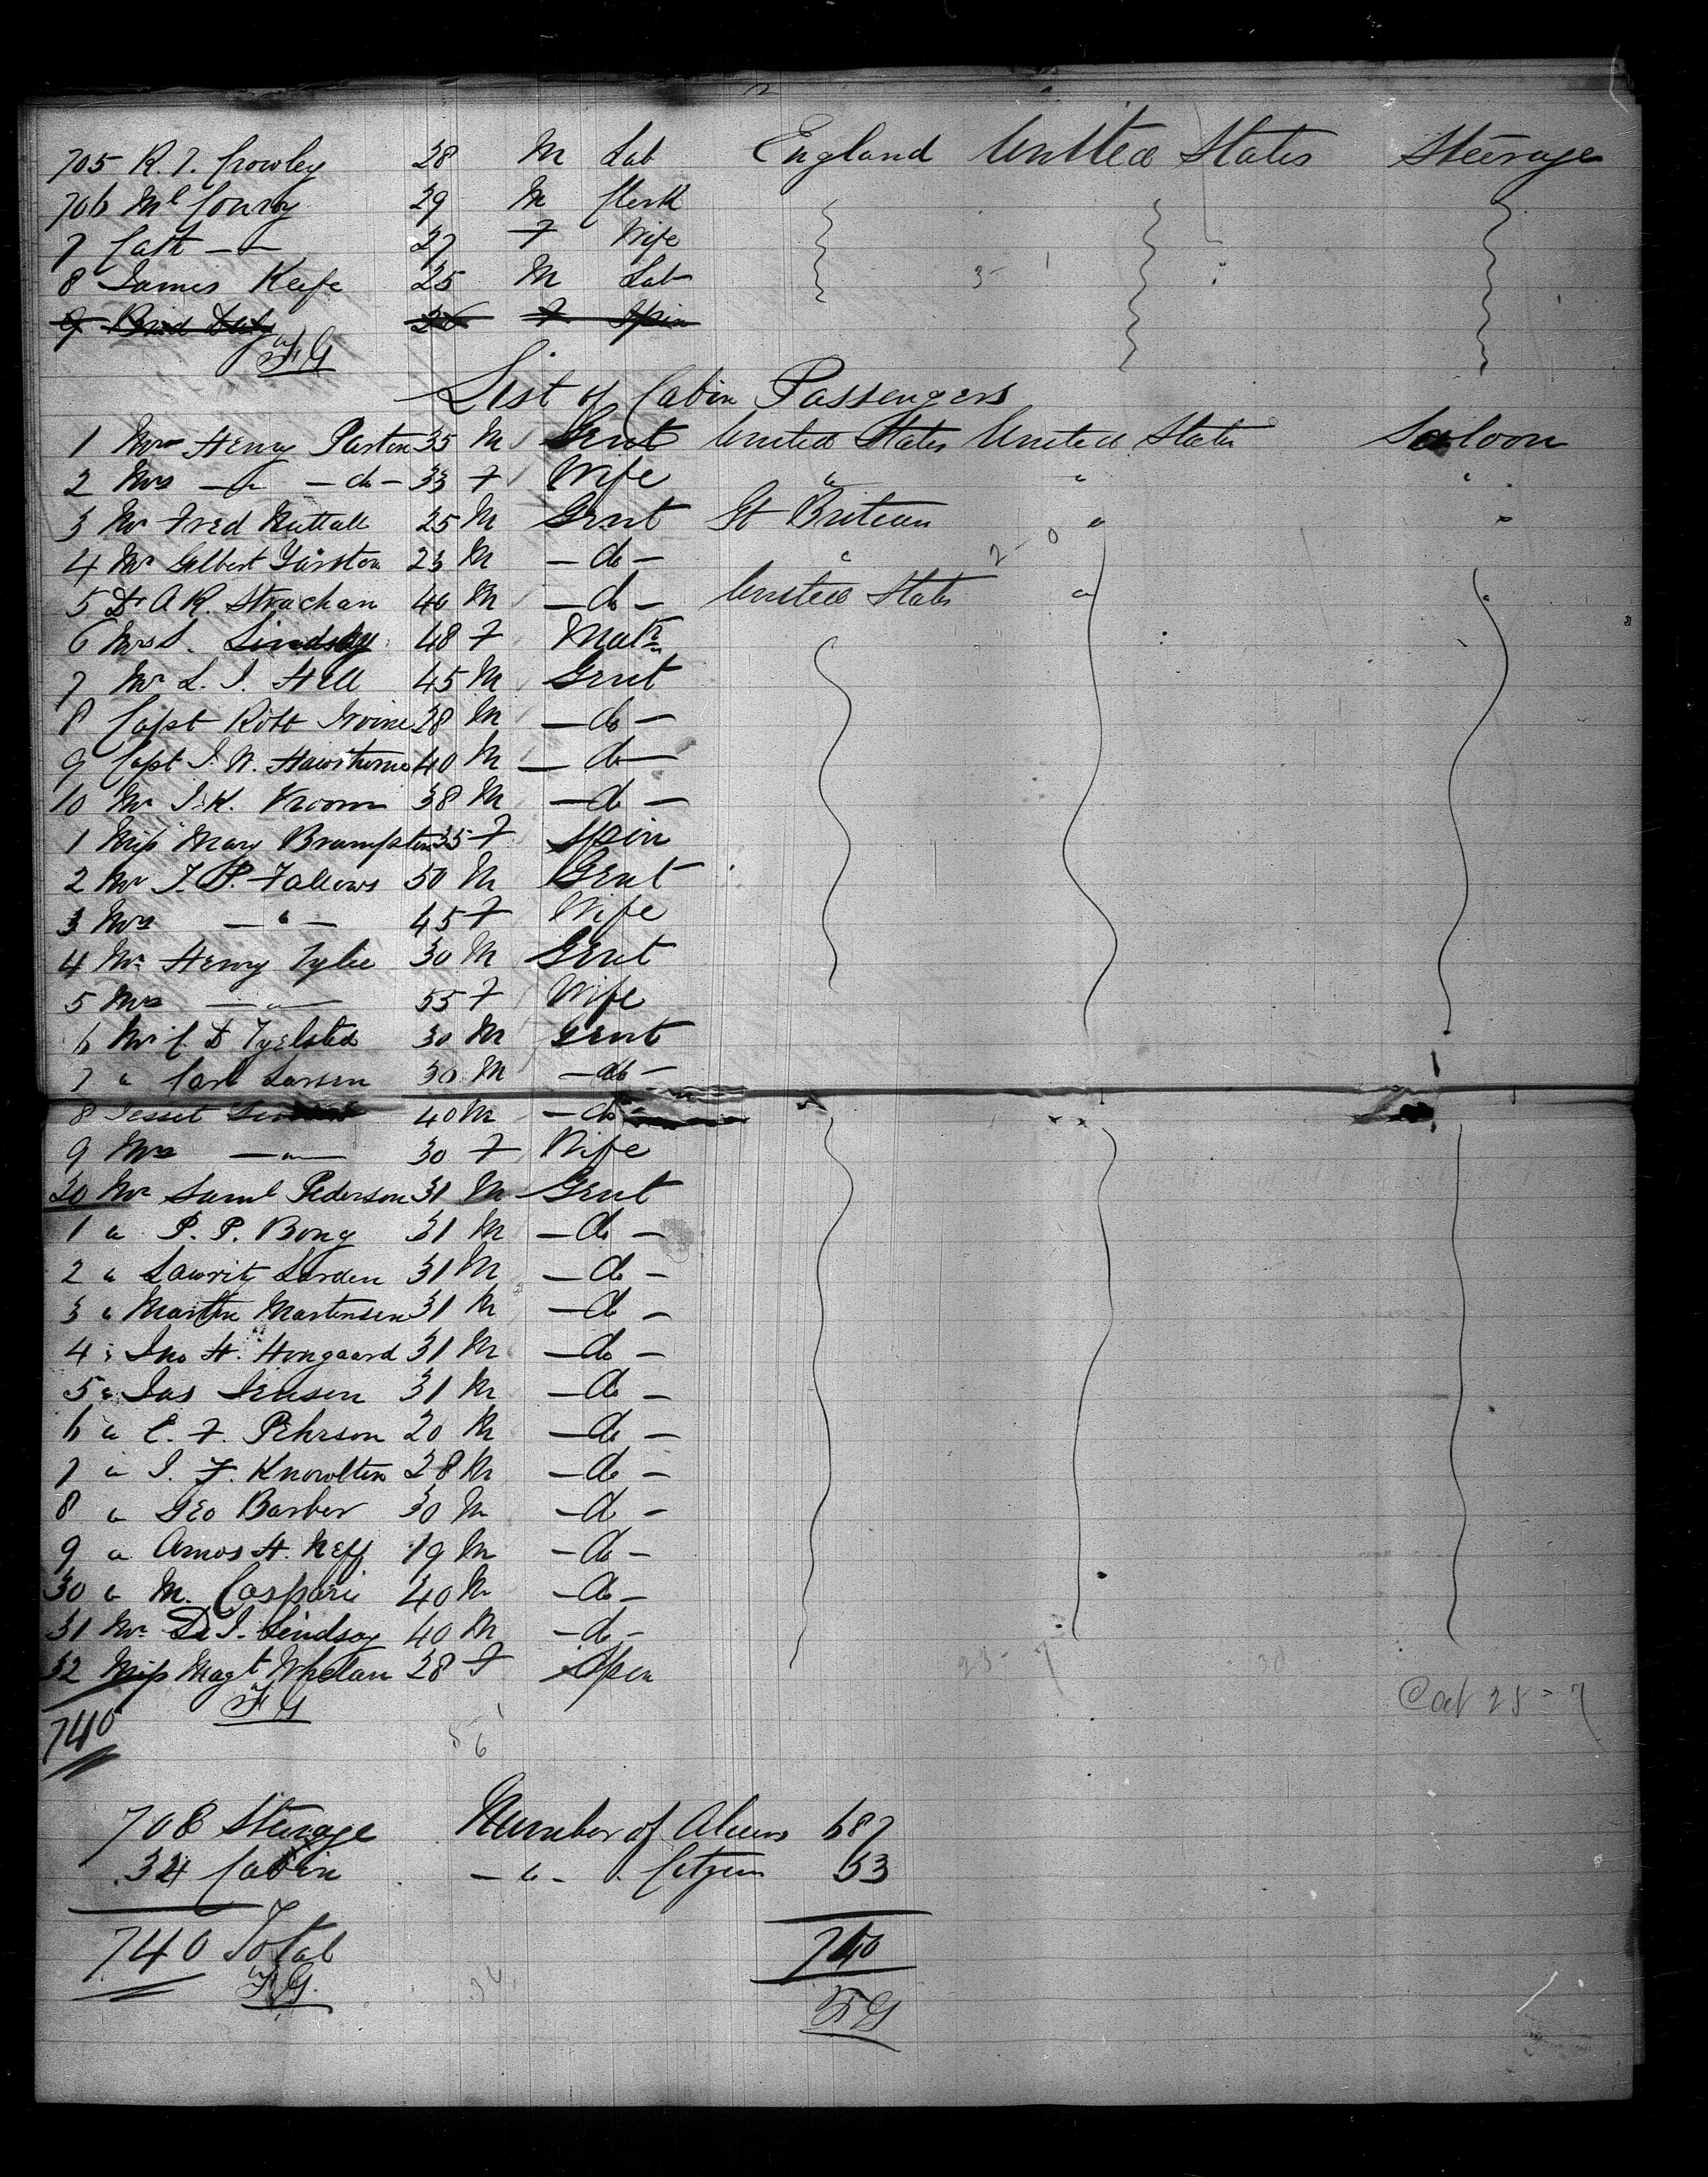 705 R. J. Crowley 28 M Lab England United States Steerage
706 Ml Conroy 29 M Clerk
7 Cath — " — 27 F Wife
8 James Keefe 25 M Lab
9 Brid 26 F Spin
List of Cabin Passengers
1 Mr Henry Paston 35 M Gent United States United States Saloon
2 Mrs — " — do — 33 F Wife " " "
3 Mr Fred Nuttall 25 M Gent Gt Britain " "
4 Mr Gilbert 23 M — do — "
5 Dr A R. Strachan 40 M — do — United States " "
6 Mrs S. Lindsay 48 F Matn
7 Mr L. J. Hill 45 M Gent
8 Capt Robt Irvine 28 M — do —
9 Capt J. W. Hawthorne 40 M — do —
10 Mr J. K. Vroom 38 M — do —
1 Miss Mary Brampston 35 F Spin
2 Mr J. P. Fallows 50 M Gent
3 Mrs — " — 45 F Wife
4 Mr Henry Tylie 30 M Gent
5 Mrs — " — 55 F Wife
6 Mr C. D. Tyelsted 30 M Gent
7 " Carl Larsen 30 M — do —
8 Jesset 40 M — do —
9 Mrs — " — 30 F Wife
20 Mr Saml Pederson 31 M Gent
1 " P. P. Bong 31 M — do —
2 " Lawritz Larden 31 M — do —
3 " Martin Martensen 31 M — do —
4 " Jno H. Hongaard 31 M — do —
5 " Jas Jensen 31 M — do —
6 " C. F. Pehrson 20 M — do —
7 " J. F. Knowlton 28 M — do —
8 " Geo Barber 30 M — do —
9 " Amos H. Neff 19 M — do —
30 " M. Caspari 40 M — do —
31 Mr D. J. Lindsay 40 M — do —
32 Miss Magt Whelan 28 F Spin
F G
740
708 Steerage Number of Aliens 687
32 Cabin — " — Citzens 53
740 Total 740
F G. F G